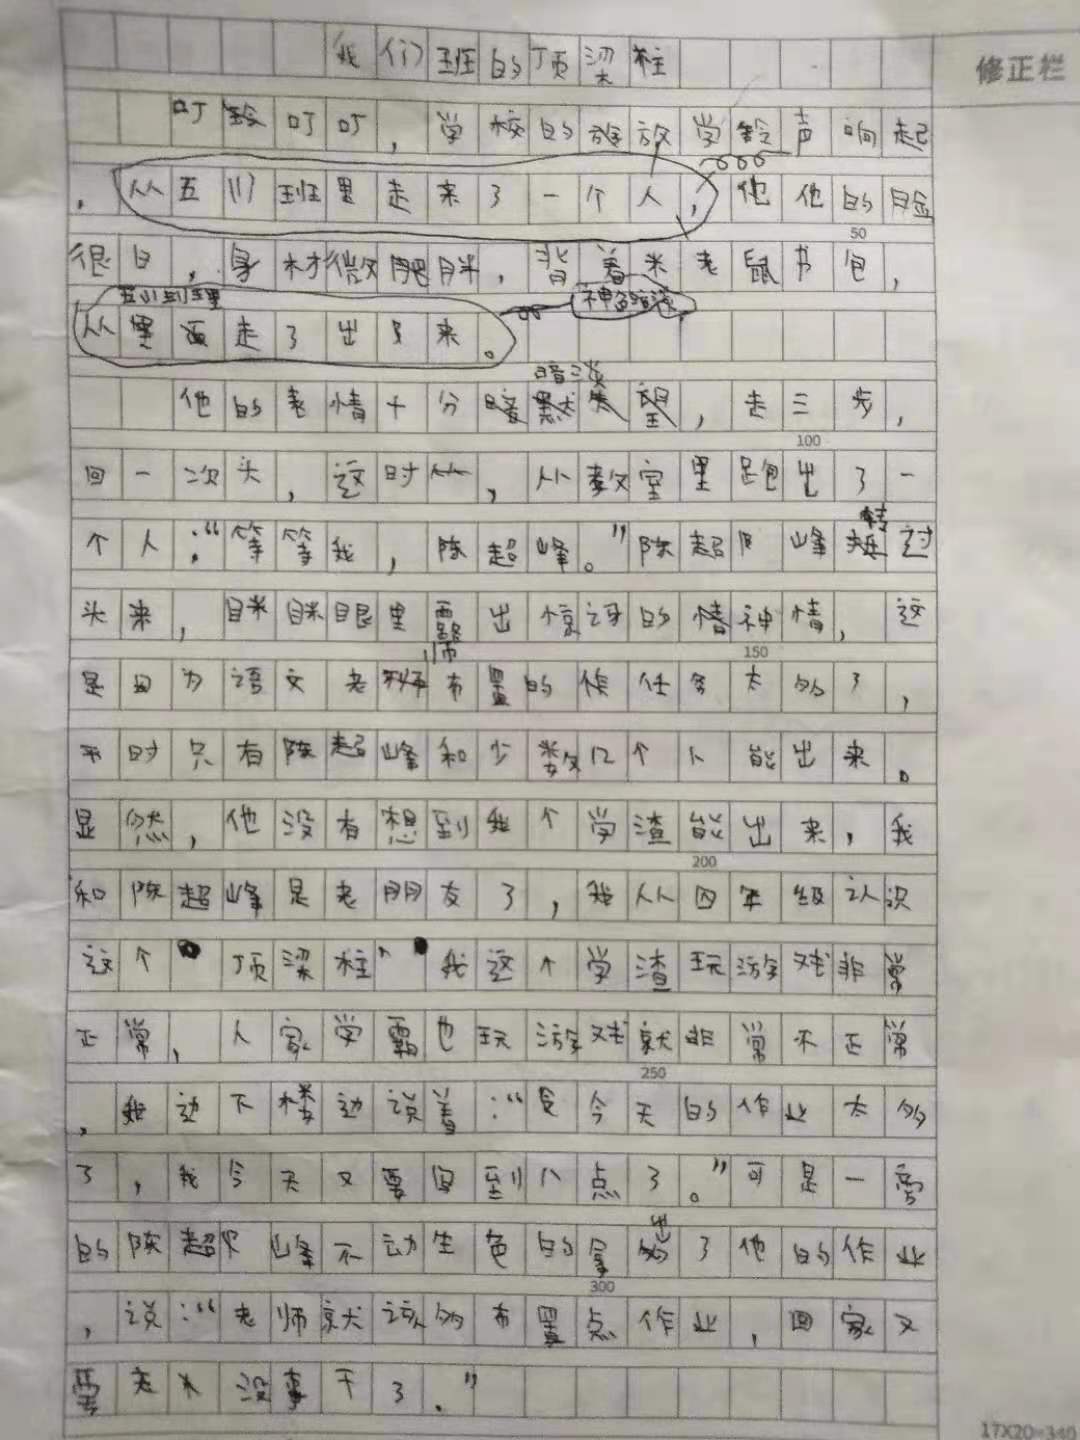 我们班的顶梁柱
修正栏
叮铃叮叮，学校的放学铃声响起
，从五(1)班里走来了一个人，他他的脸
50
很白，身材微肥胖，背着米老鼠书包，
神色暗淡
从里面走了出来。
暗淡
他的表情十分失望，走三步，
100
回一次头，这时，从教室里跑出了一
转
个人：“等等我，陈超峰。”陈超峰过
头来，眼里露出惊讶的神情，这
150
师
是因为语文老布置的任务太多了，
平时只有陈超峰和少数几个人能出来。
显然，他没有想到我个学渣能出来，我
200
和陈超峰是老朋友了，我从四年级认识
这个“顶梁柱”我这个学渣玩游戏非常
正常，人家学霸也玩游戏就非常不正常
250
，我边下楼边说着：“今天的作业太多
了，我今天又要写到八点了。”可是一旁
出
的陈超峰不动生色的拿了他的作业
300
，说：“老师就该多布置点作业，回家又
要没事干了。”
17X20=340